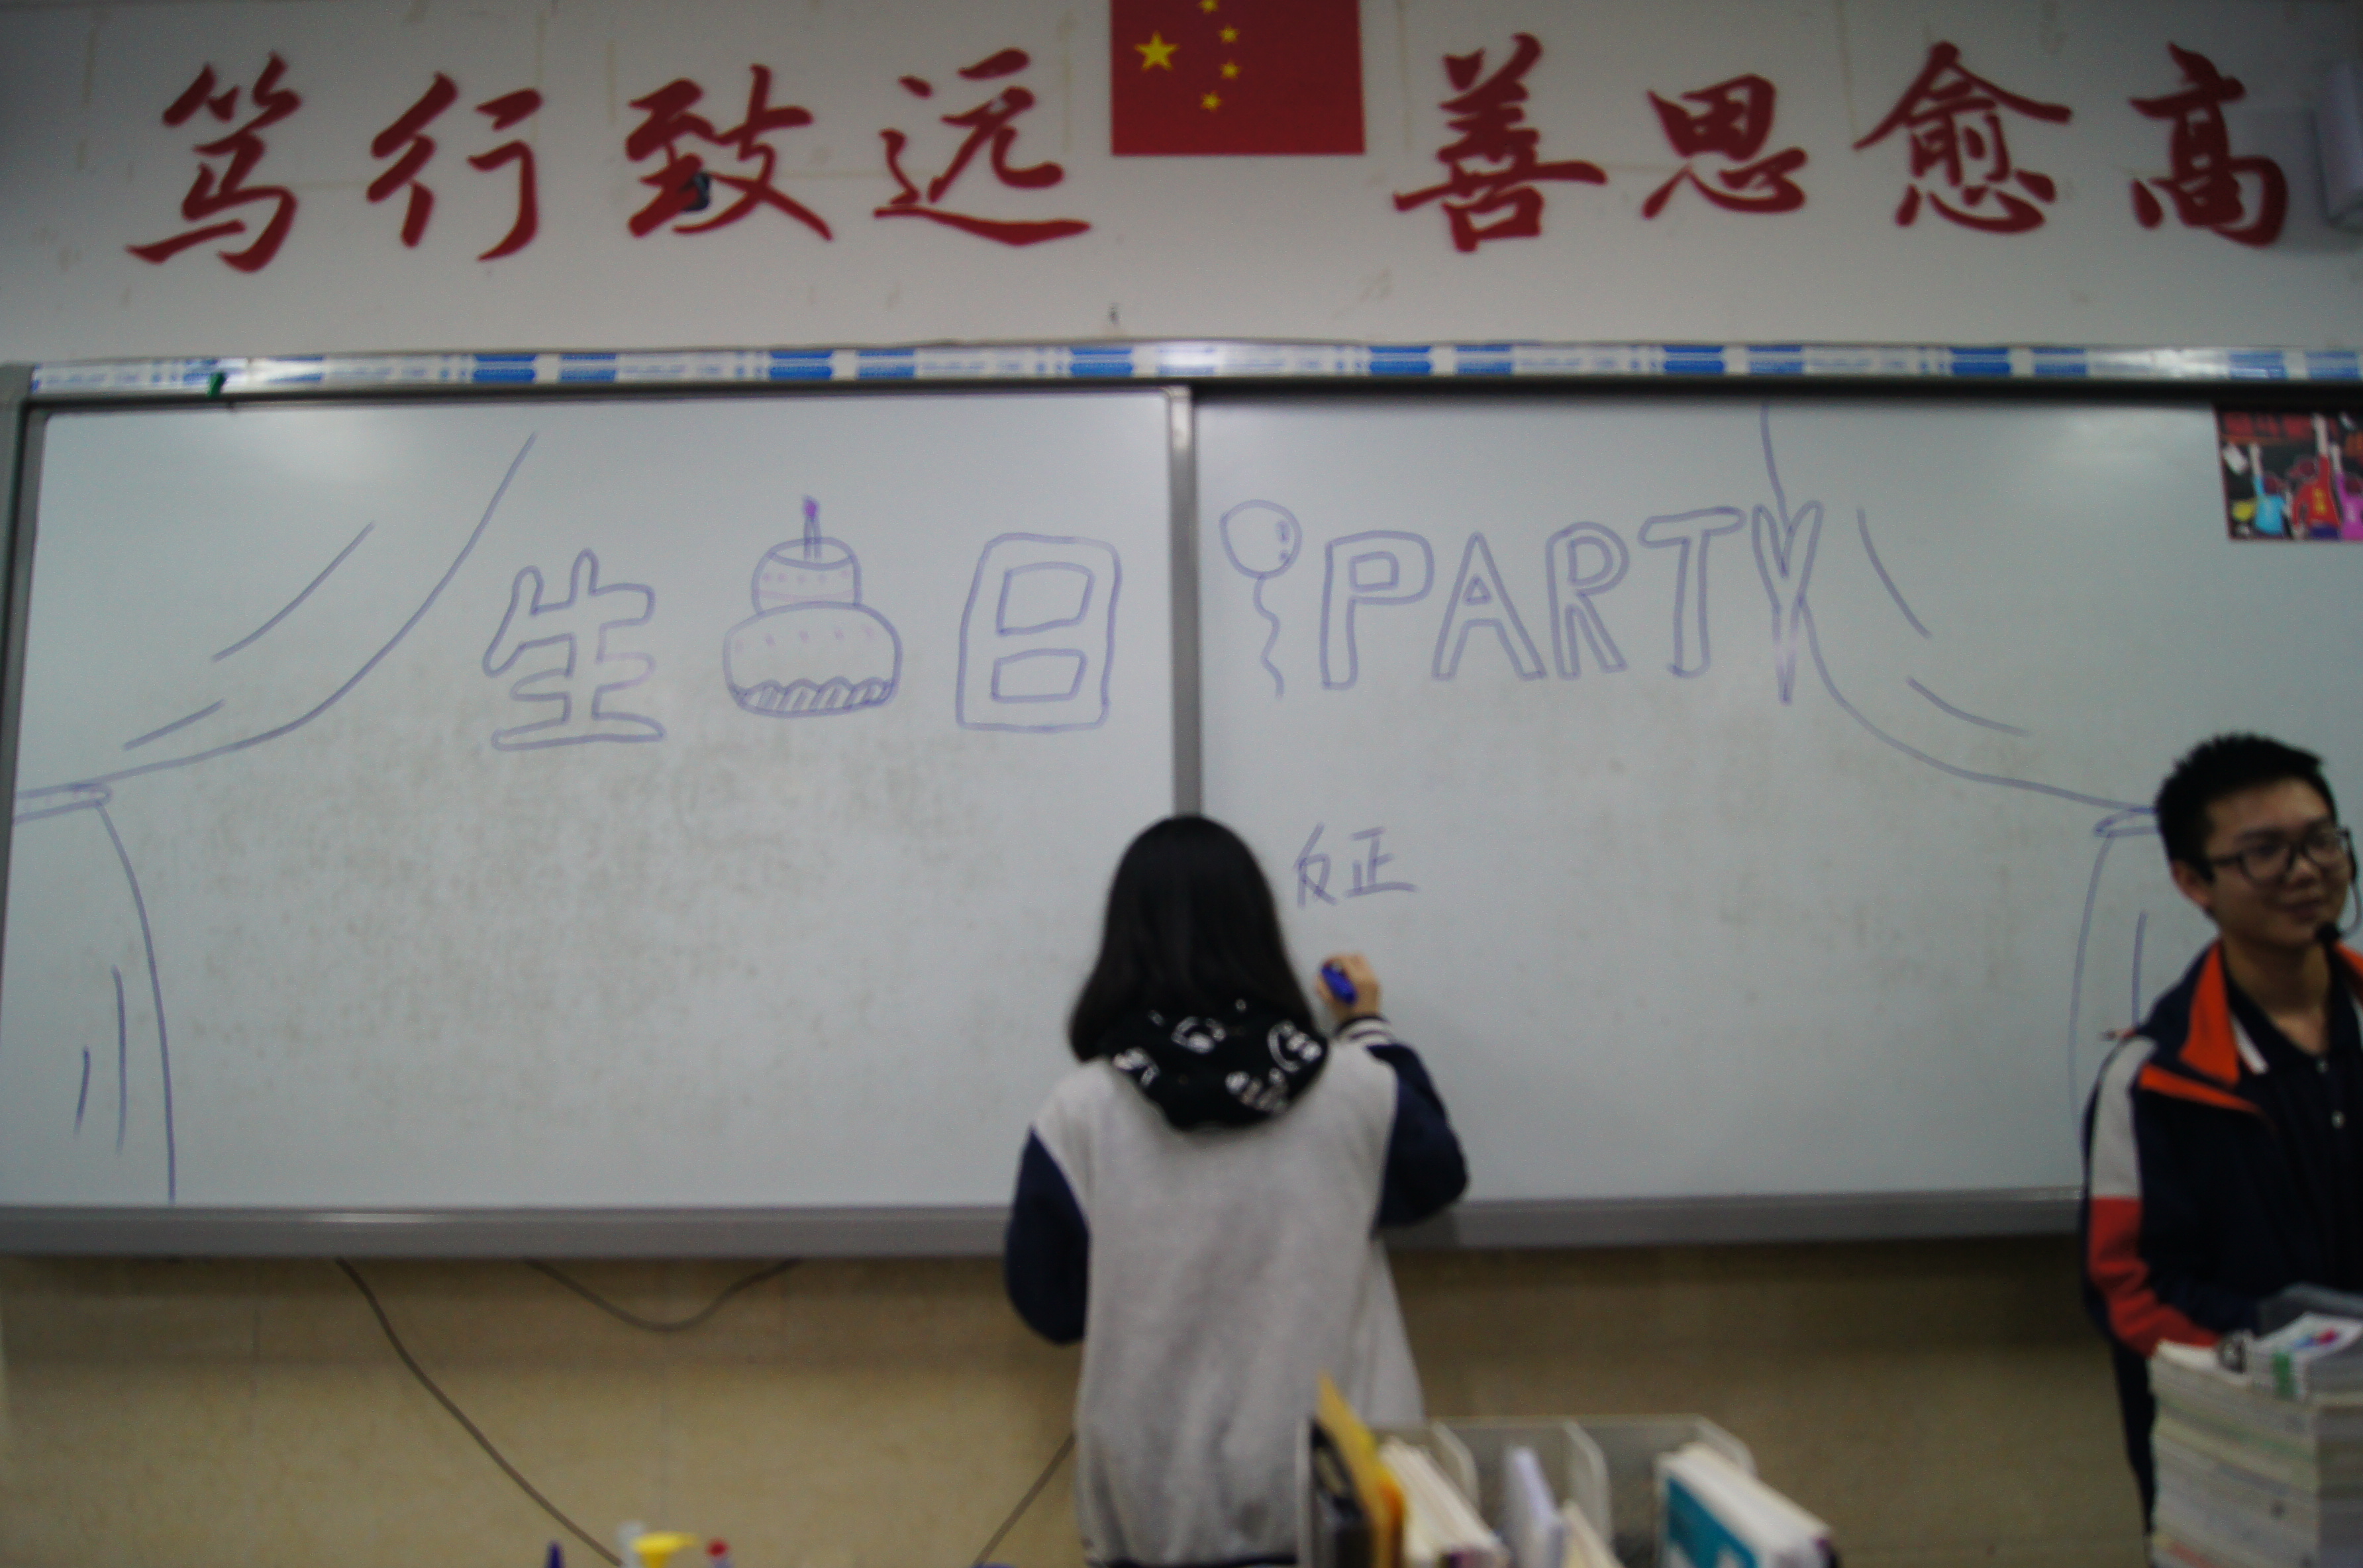 笃行致远 善思愈高
生日 PARTY
反正